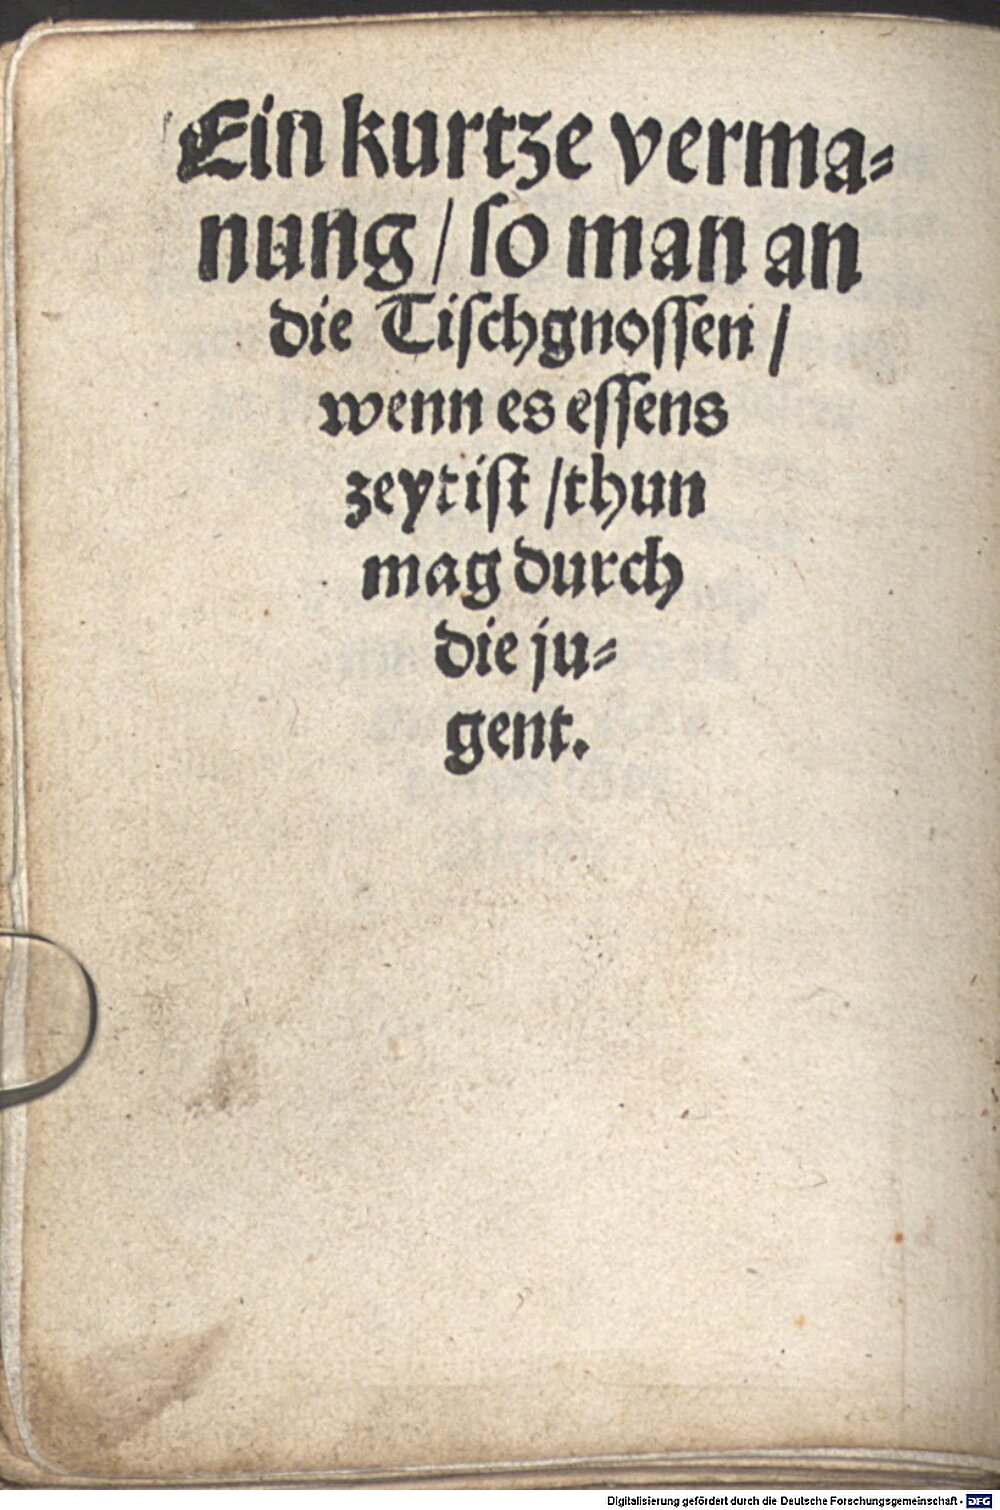 Ein kurtze verma⸗
nung / ſo man an
die Tiſchgnoſſen /
wenn es eſſens
zeyt iſt / thun
mag durch
die ju⸗
gent.
Digitalisierung gefördert durch die Deutsche Forschungsgemeinschaft - DFG